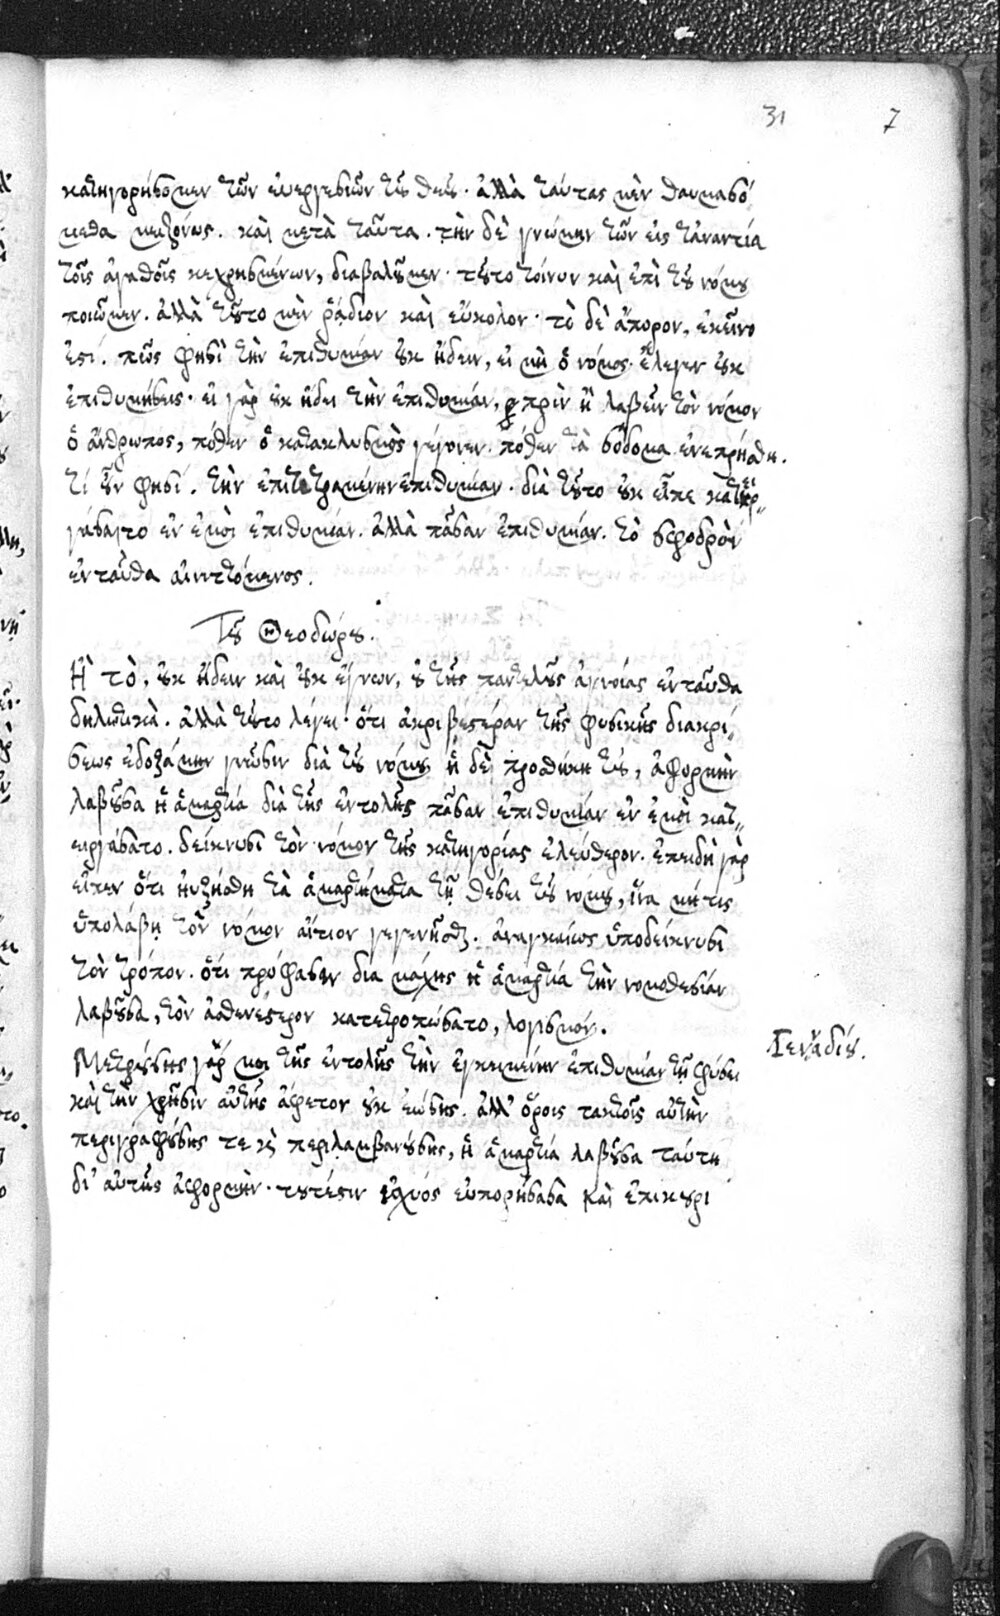 31 7
κατηγορήσομεν τῶν εὐεργεσιῶν τοῦ θεοῦ· ἀλλὰ ταύτας μὲν θαυμασό
μεθα μειζόνως. καὶ μετὰ ταῦτα. τὴν δὲ γνώμην τῶν εἰς τἀναντία
τοῖς ἀγαθοῖς κεχρημένων, διαβαλοῦμεν· τοῦτο τοίνυν καὶ ἐπὶ τοῦ νόμου
ποιῶμεν. ἀλλὰ τοῦτο μὲν ῥᾴδιον καὶ εὔκολον· τὸ δὲ ἄπορον, ἐκεῖνο
ἐστί. πῶς φησὶ τὴν ἐπιθυμίαν οὐκ ᾔδειν, εἰ μὴ ὁ νόμος ἔλεγεν οὐκ
ἐπιθυμήσεις· εἰ γὰρ οὐκ ᾔδει τὴν ἐπιθυμίαν, πρὶν ἢ λαβεῖν τὸν νόμον
ὁ ἄνθρωπος, πόθεν ὁ κατακλυσμὸς γέγονεν. πόθεν τὰ σόδομα ἐνεπρήσθη.
τί οὖν φησί. τὴν ἐπιτεταμένην ἐπιθυμίαν· διὰ τοῦτο οὐκ εἶπε κατειρ
γάσατο ἐν ἐμοὶ ἐπιθυμίαν. ἀλλὰ πᾶσαν ἐπιθυμίαν. τὸ σφοδρὸν
ἐνταῦθα αἰνιττόμενος.
Τοῦ Θεοδώρου.
Ἢ τὸ, οὐκ ᾔδειν καὶ οὐκ ἔγνων, οὐ τῆς παντελοῦς ἀγνοίας ἐνταῦθα
δηλωτικὰ. ἀλλὰ τοῦτο λέγει· ὅτι ἀκριβεστέραν τῆς φυσικῆς διακρί
σεως ἐδεξάμην γνῶσιν διὰ τοῦ νόμου, ἡ δὲ προσθήκη τοῦ, ἀφορμὴν
λαβοῦσα ἡ ἁμαρτία διὰ τῆς ἐντολῆς πᾶσαν ἐπιθυμίαν ἐν ἐμοὶ κατ
ειργάσατο. δείκνυσι τὸν νόμον τῆς κατηγορίας ἐλεύθερον. ἐπειδὴ γὰρ
εἶπεν ὅτι ηὐξήθη τὰ ἁμαρτήματα τῇ θέσει τοῦ νόμου, ἵνα μήτις
ὑπολάβῃ τὸν νόμον αἴτιον γεγενῆσθαι. ἀναγκαίως ὑποδείκνυσι
τὸν τρόπον. ὅτι πρόφασιν διαμάχης ἡ ἁμαρτία τὴν νομοθεσίαν
λαβοῦσα, τὸν ἀσθενέστερον κατετροπώσατο, λογισμόν.
Γενναδίου.
Μετρούσης γάρ μοι τῆς ἐντολῆς τὴν ἐγκειμένην ἐπιθυμίαν τῇ φύσει
καὶ τὴν χρῆσιν αὐτῆς ἄφετον οὐκ ἐώσης. ἀλλ' ὅροις τακτοῖς αὐτὴν
περιγραφούσης τε καὶ περιλαμβανούσης, ἡ ἁμαρτία λαβοῦσα ταύτη
δι' αὐτῆς ἀφορμὴν· τουτέστιν ἰσχύος εὐπορήσασα καὶ ἐπικουρί